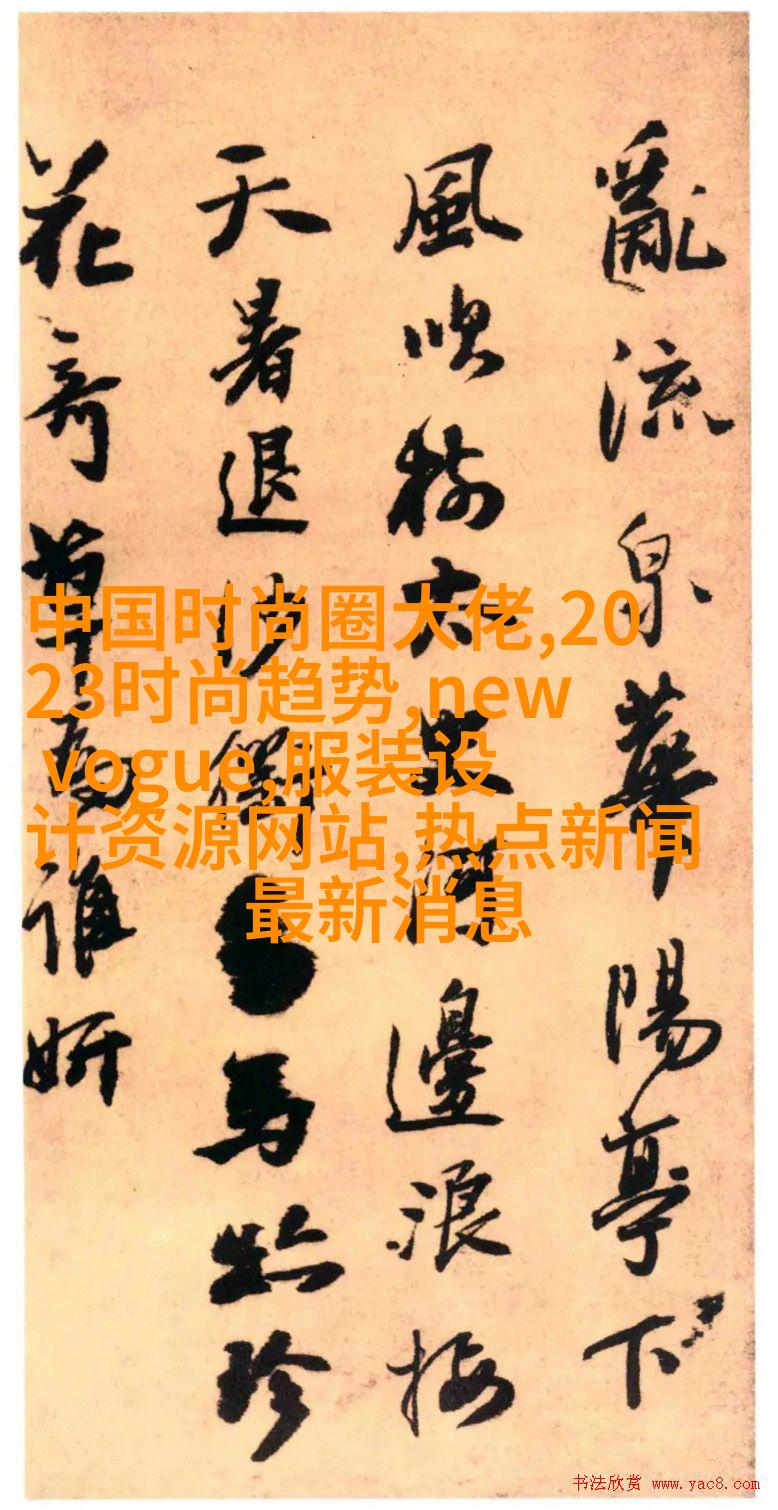 亂流泉華陽亭下
風吹樹太邊浪接
天暑退沙馬珍
花奇草為誰妍
中国时尚圈大佬,20
23时尚趋势,new
vogue,服装设
计资源网站,热点新闻
最新消息
书法欣赏 www.yac8.com